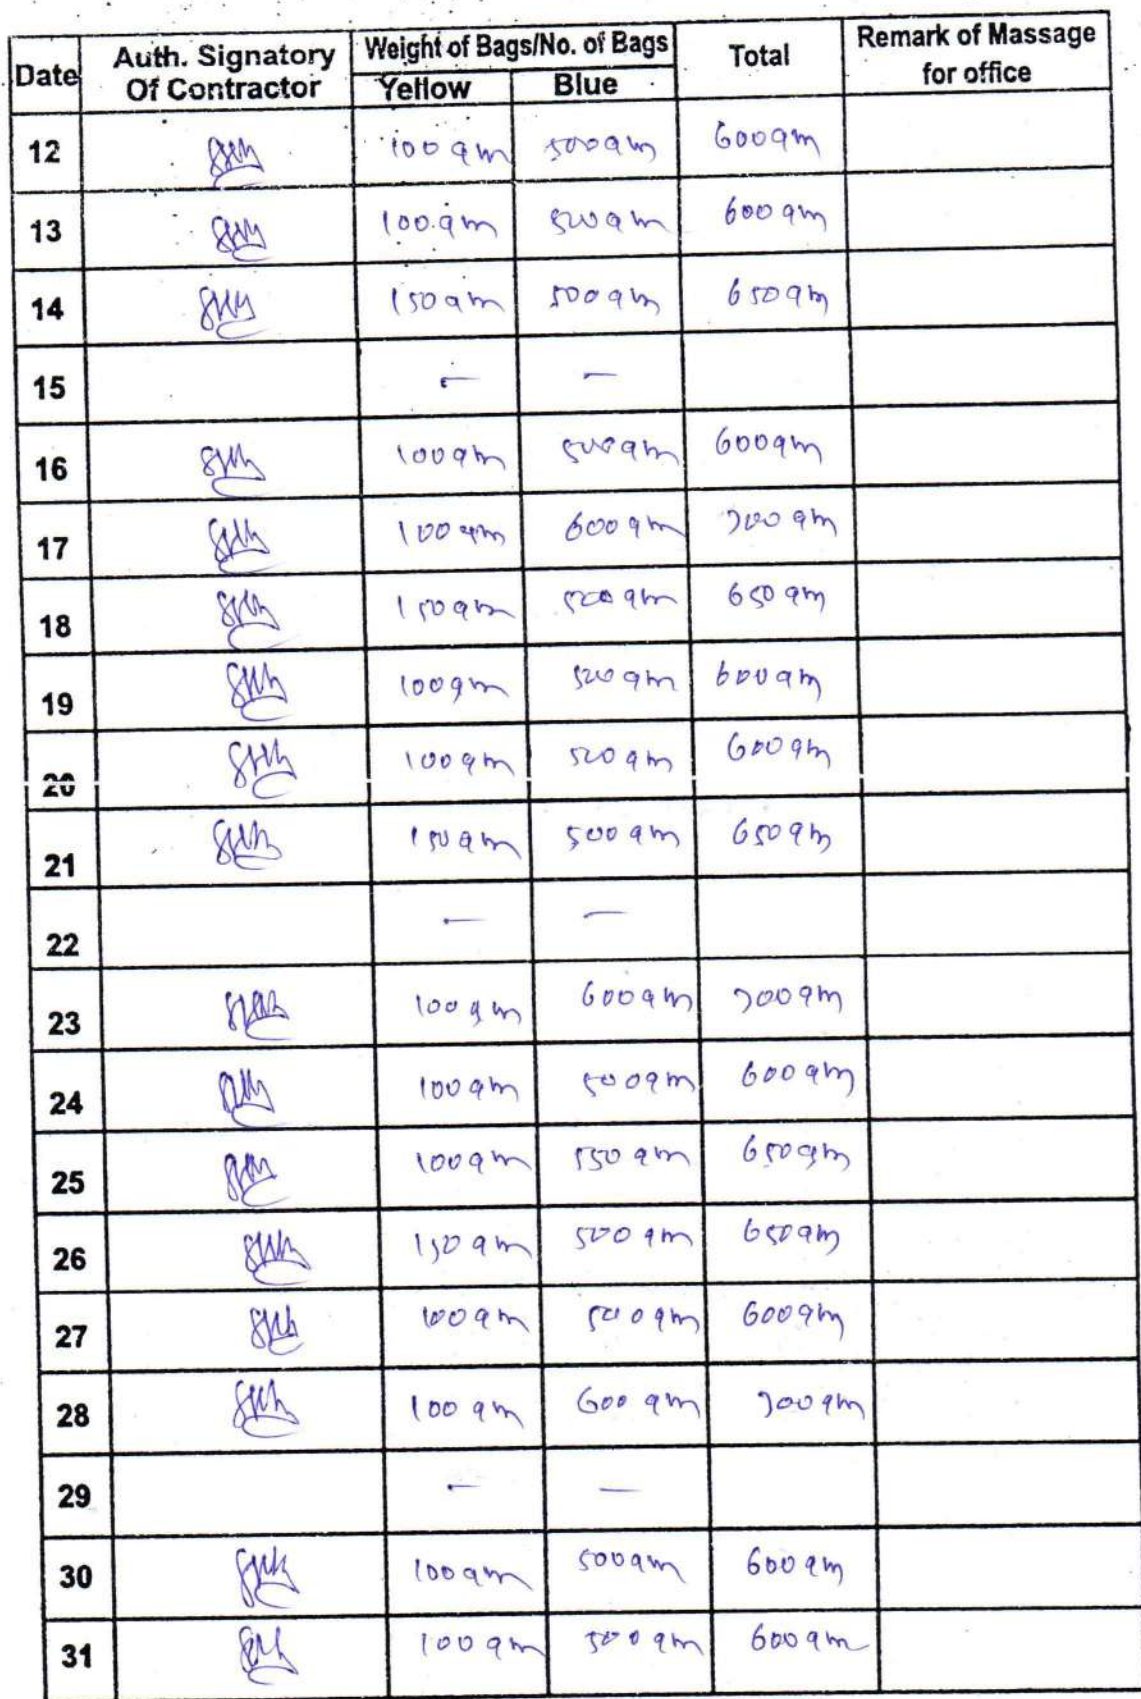 Date Auth. Signatory Of Contractor Weight of Bags/No. of Bags Total Remark of Massage for office
Yellow Blue
12 100 gm 500gm 600gm
13 100 gm 500 gm 600 gm
14 150 gm 500 gm 650 gm
15 — —
16 100 gm 500 gm 600gm
17 100 gm 600 gm 700 gm
18 150 gm 500 gm 650 gm
19 100gm 500 gm 600 gm
20 100 gm 500 gm 600 gm
21 150 gm 500 gm 650 gm
22 — —
23 100 gm 600 gm 700 gm
24 100 gm 500 gm 600 gm
25 100 gm 550 gm 650 gm
26 150 gm 500 gm 650 gm
27 100 gm 500 gm 600 gm
28 100 gm 600 gm 700 gm
29 — —
30 100 gm 500gm 600 gm
31 100 gm 500 gm 600 gm